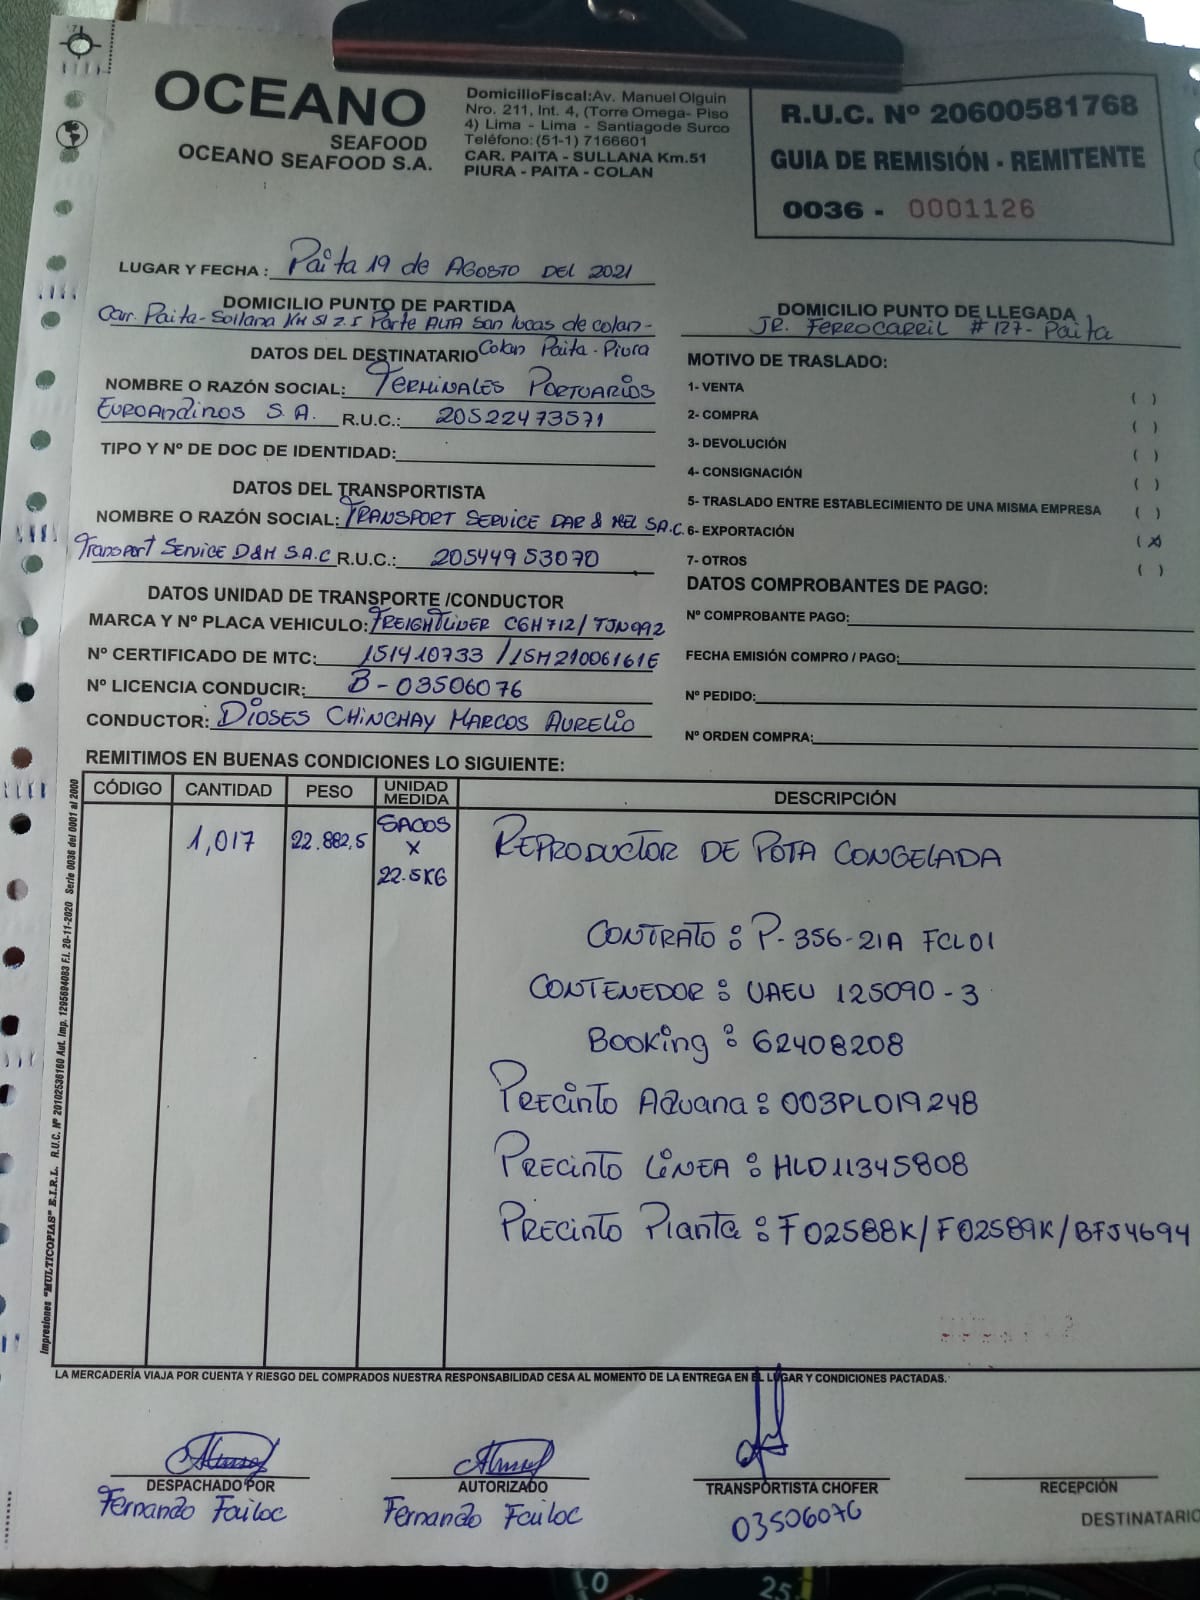 OCEANO
SEAFOOD
OCEANO SEAFOOD S.A.
DomicilioFiscal:Av. Manuel Olguin
Nro. 211, Int. 4, (Torre Omega- Piso
4) Lima - Lima - Santiagode Surco
Teléfono:(51-1) 7166601
CAR. PAITA - SULLANA Km.51
PIURA - PAITA - COLAN
R.U.C. Nº 20600581768
GUIA DE REMISIÓN - REMITENTE
0036 - 0001126
LUGAR Y FECHA : Paita 19 de AGOSTO DEL 2021
DOMICILIO PUNTO DE PARTIDA
Car. Paita-Sollana KM 51 Z.I Parte ALTA San lucas de colan-
Colan Paita - Piura
DOMICILIO PUNTO DE LLEGADA
JR. FERROCARRIL #127- Paita
DATOS DEL DESTINATARIO
NOMBRE O RAZÓN SOCIAL: TERMINALES PORTUARIOS
EUROANDINOS S.A. R.U.C.: 20522473571
TIPO Y Nº DE DOC DE IDENTIDAD:
DATOS DEL TRANSPORTISTA
NOMBRE O RAZÓN SOCIAL: TRANSPORT SERVICE DAR & MEL S.A.C.
Transport Service D&M S.A.C R.U.C.: 20544953070
DATOS UNIDAD DE TRANSPORTE /CONDUCTOR
MARCA Y Nº PLACA VEHICULO: FREIGHTLINER C6H712/TJN992
Nº CERTIFICADO DE MTC: 151410733 /15M21006161E
Nº LICENCIA CONDUCIR: B-03506076
CONDUCTOR: DIOSES CHINCHAY MARCOS AURELIO
MOTIVO DE TRASLADO:
1- VENTA ( )
2- COMPRA ( )
3- DEVOLUCIÓN ( )
4- CONSIGNACIÓN ( )
5- TRASLADO ENTRE ESTABLECIMIENTO DE UNA MISMA EMPRESA ( )
6- EXPORTACIÓN (X)
7- OTROS ( )
DATOS COMPROBANTES DE PAGO:
Nº COMPROBANTE PAGO:
FECHA EMISIÓN COMPRO / PAGO:
Nº PEDIDO:
Nº ORDEN COMPRA:
REMITIMOS EN BUENAS CONDICIONES LO SIGUIENTE:
CÓDIGO CANTIDAD PESO UNIDAD MEDIDA DESCRIPCIÓN
1,017 22.882,5 SACOS X 22.5KG REPRODUCTOR DE POTA CONGELADA
CONTRATO : P-356-21A FCL01
CONTENEDOR : UAEU 125090-3
Booking : 62408208
PRECINTO ADUANA : 003PL019248
PRECINTO LÍNEA : HLD11345808
PRECINTO Planta : F02588K/F02589K/BFJ4694
Impresiones "MULTICOPIAS" E.I.R.L. R.U.C. Nº 20102536160 Aut. Imp. 1295694083 F.I. 20-11-2020 Serie 0036 del 0001 al 2000
LA MERCADERÍA VIAJA POR CUENTA Y RIESGO DEL COMPRADOS NUESTRA RESPONSABILIDAD CESA AL MOMENTO DE LA ENTREGA EN EL LUGAR Y CONDICIONES PACTADAS.
DESPACHADO POR AUTORIZADO TRANSPORTISTA CHOFER RECEPCIÓN
Fernando Failoc Fernando Failoc 03506076
DESTINATARIO
0 25